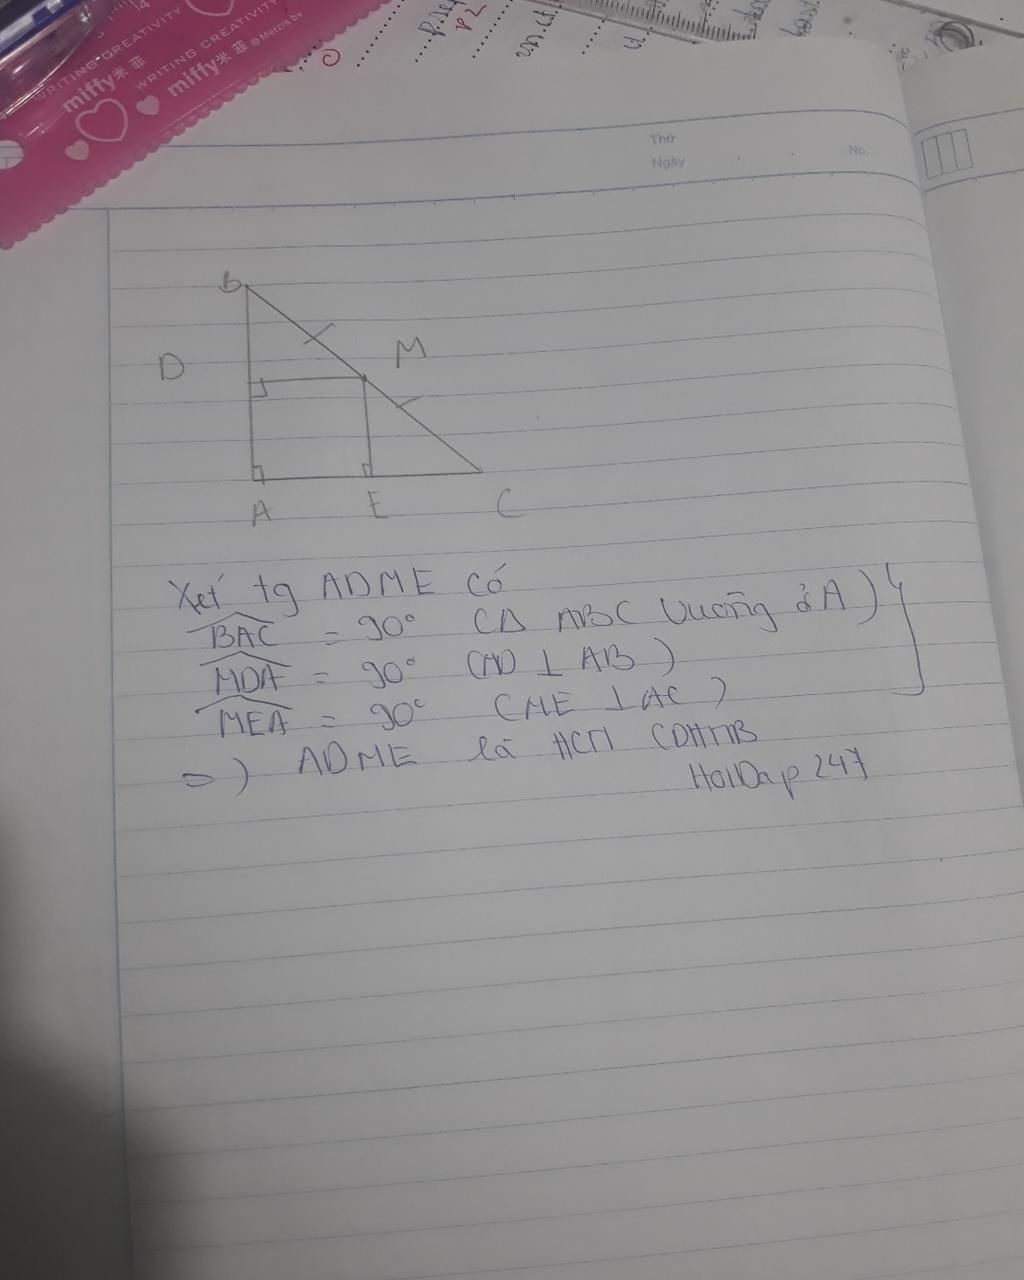 WRITING CREATIVITY
miffy米菲
WRITING CREATIVITY
miffy米菲
© Mercis bv
P2
Thứ
Ngày
No.
B
D
M
A
E
C
Xét tg ADME có
BAC = 90° (Δ ABC vuông ở A)
MDA = 90° (MD ⊥ AB)
MEA = 90° (ME ⊥ AC)
=) ADME là HCN (DHNB
HoiDap 247